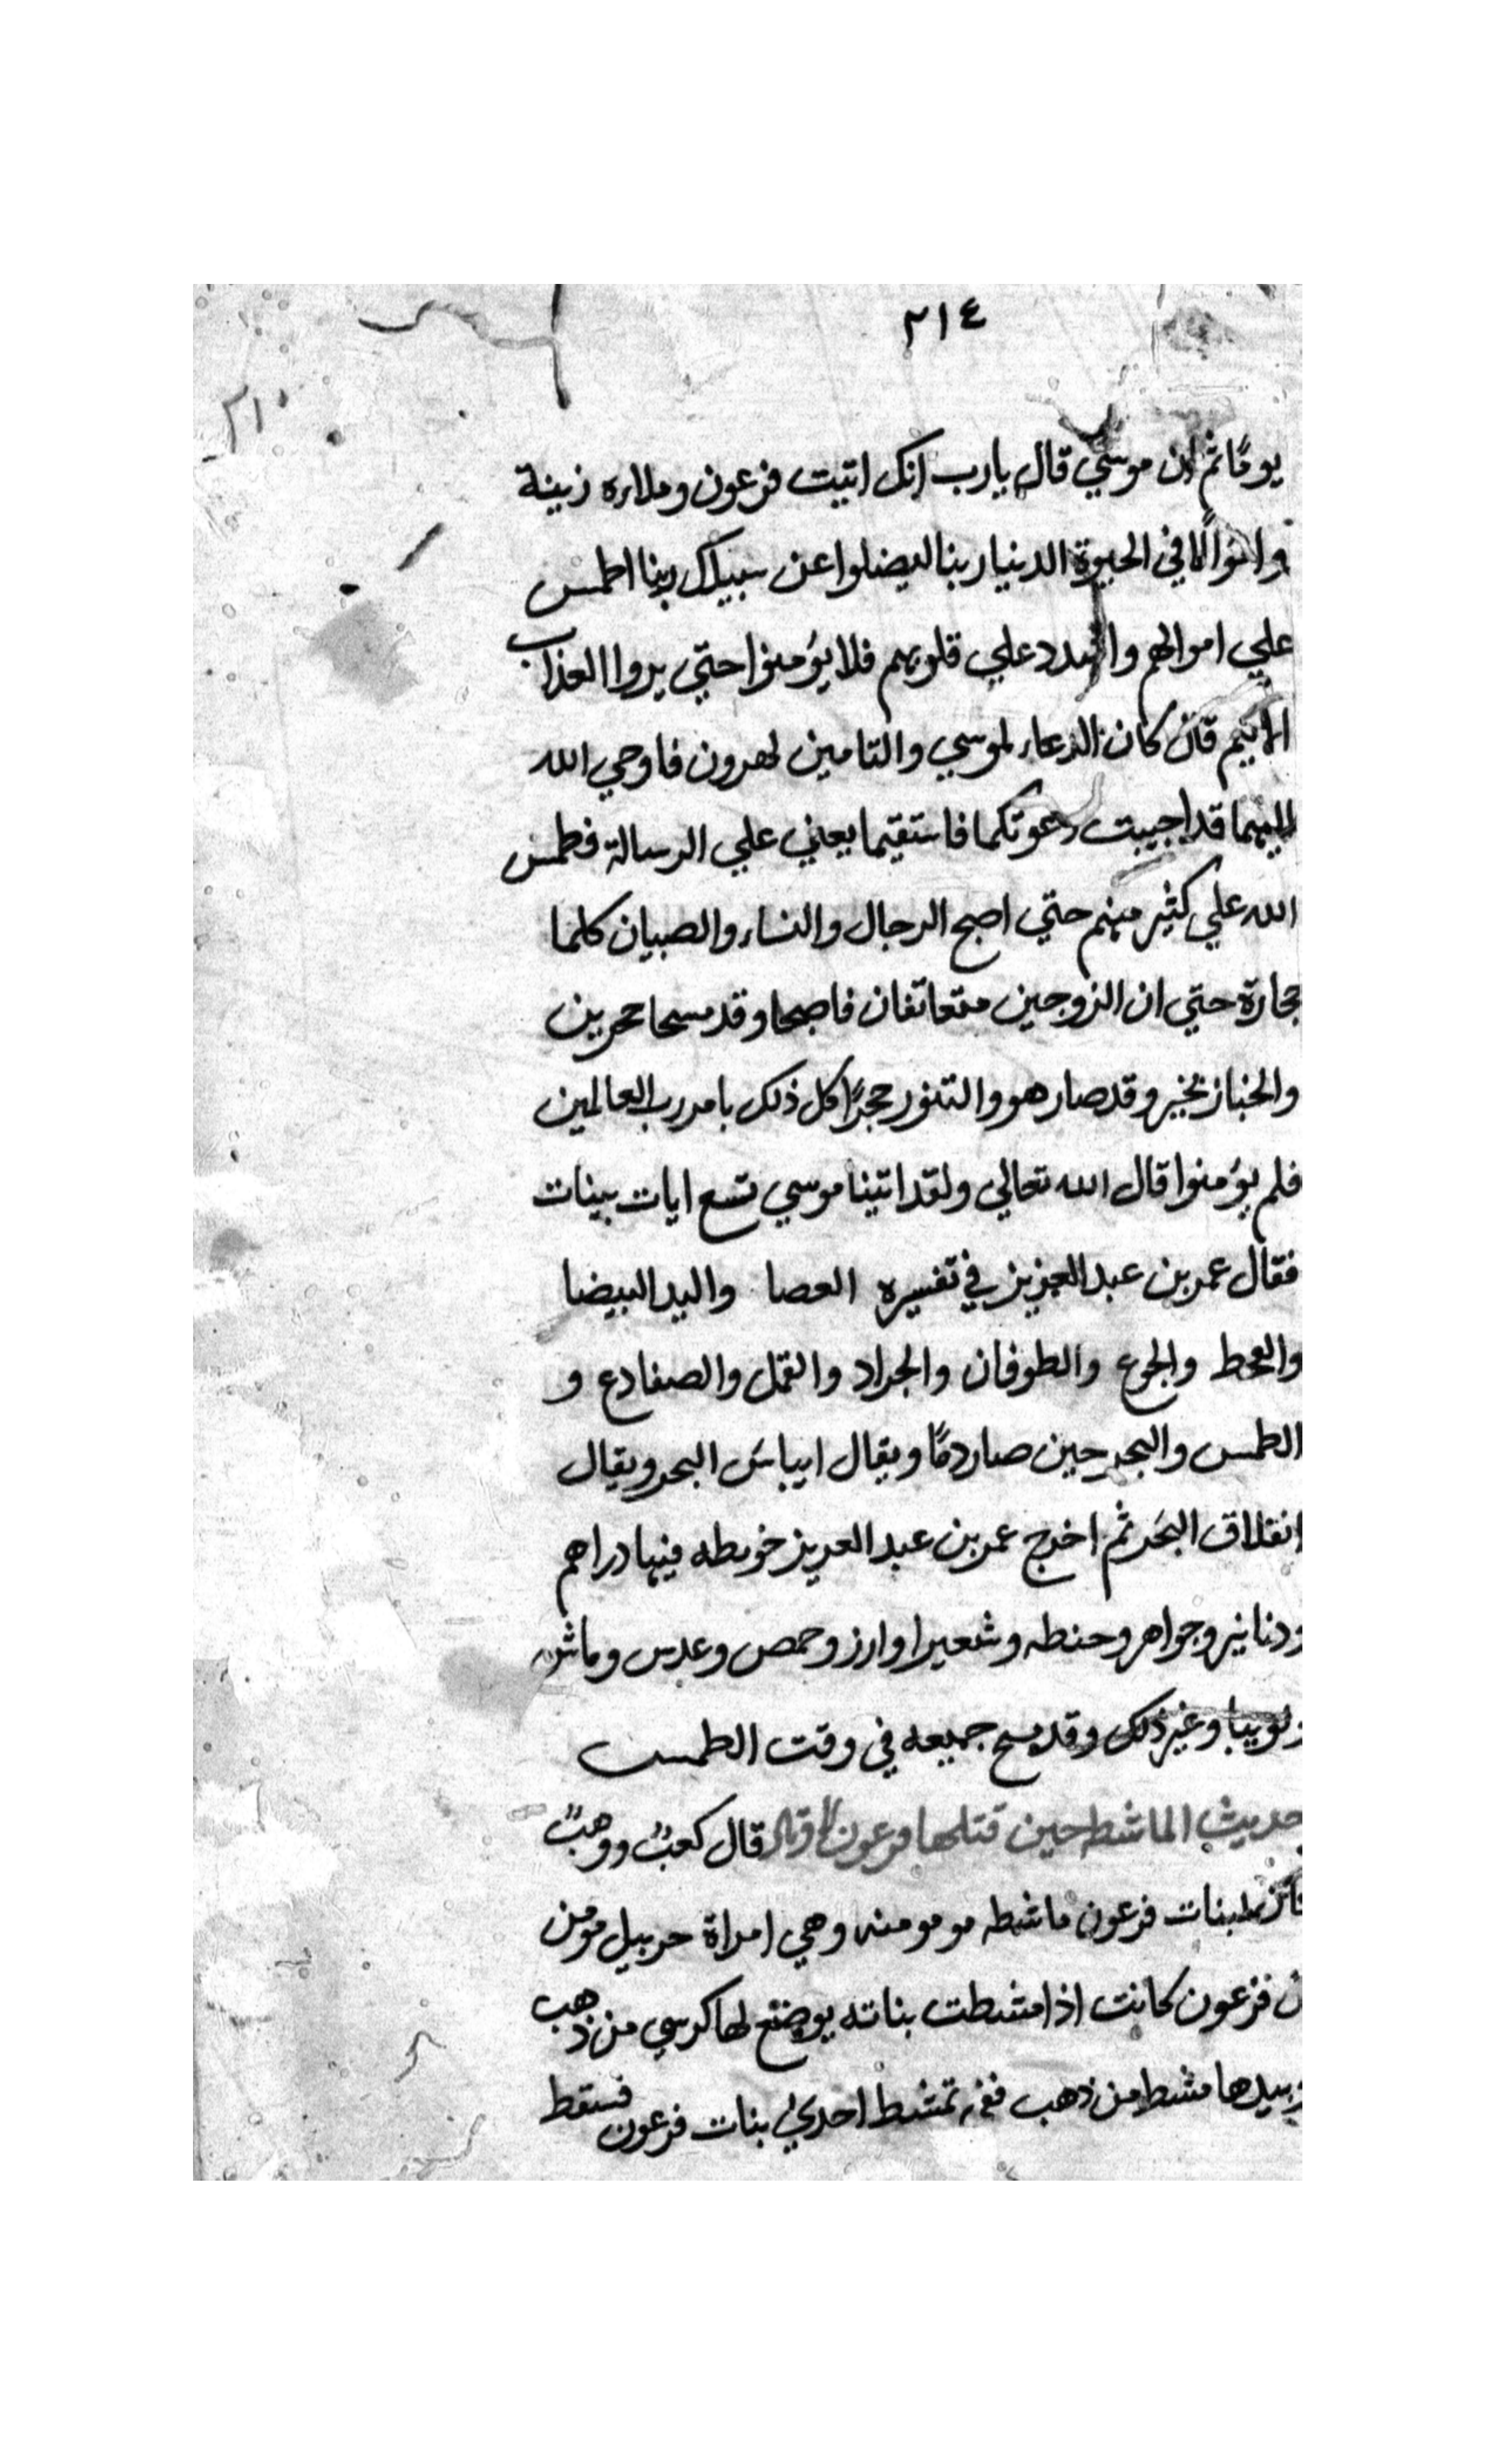 ٢١٤
٢١٠
يومًا ثم ان موسي قال يارب انك اتيت فرعون وملاره زينة
واموالًا في الحيوة الدنيا ربنا ليضلوا عن سبيلك ربنا اطمس
علي اموالهم واشدد علي قلوبهم فلا يؤمنوا حتي يروا العذاب
الاليم قال كان الدعاء لموسي والتامين لهرون فاوحي الله
اليهما قد اجيبت دعوتكما فاستقيما يعني علي الرسالة فطمس
الله علي كثير منهم حتي اصبح الرجال والنساء والصبيان كلما
حجارة حتي ان الزوجين متعانقان فاصبحا وقد مسحا حجرين
والخباز يخبز وقد صار هو والتنور حجرًا كل ذلك بامر رب العالمين
فلم يؤمنوا قال الله تعالي ولقد اتينا موسي تسع ايات بينات
فقال عمر بن عبد العزيز في تفسيره العصا واليد البيضا
والقحط والجوع والطوفان والجراد والقمل والضفادع و
الطمس والبحر حين صار دمًا ويقال ايباس البحر ويقال
انفلاق البحر ثم اخرج عمر بن عبد العزيز خريطه فيها دراهم
ودنانير وجواهر وحنطه وشعيرا وارز وحمص وعدس وماش
ولوبيا وغير ذلك وقد مسح جميعه في وقت الطمس
حديث الماشطه حين قتلها فرعون قال كعبٌ ووهبٌ
كان لبنات فرعون ماشطه مومنه وهي امراة حربيل مومن
ال فرعون كانت اذا مشطت بناته يوضع لها كرسي من ذهب
وبيدها مشط من ذهب تمشط احدي بنات فرعون فسقط